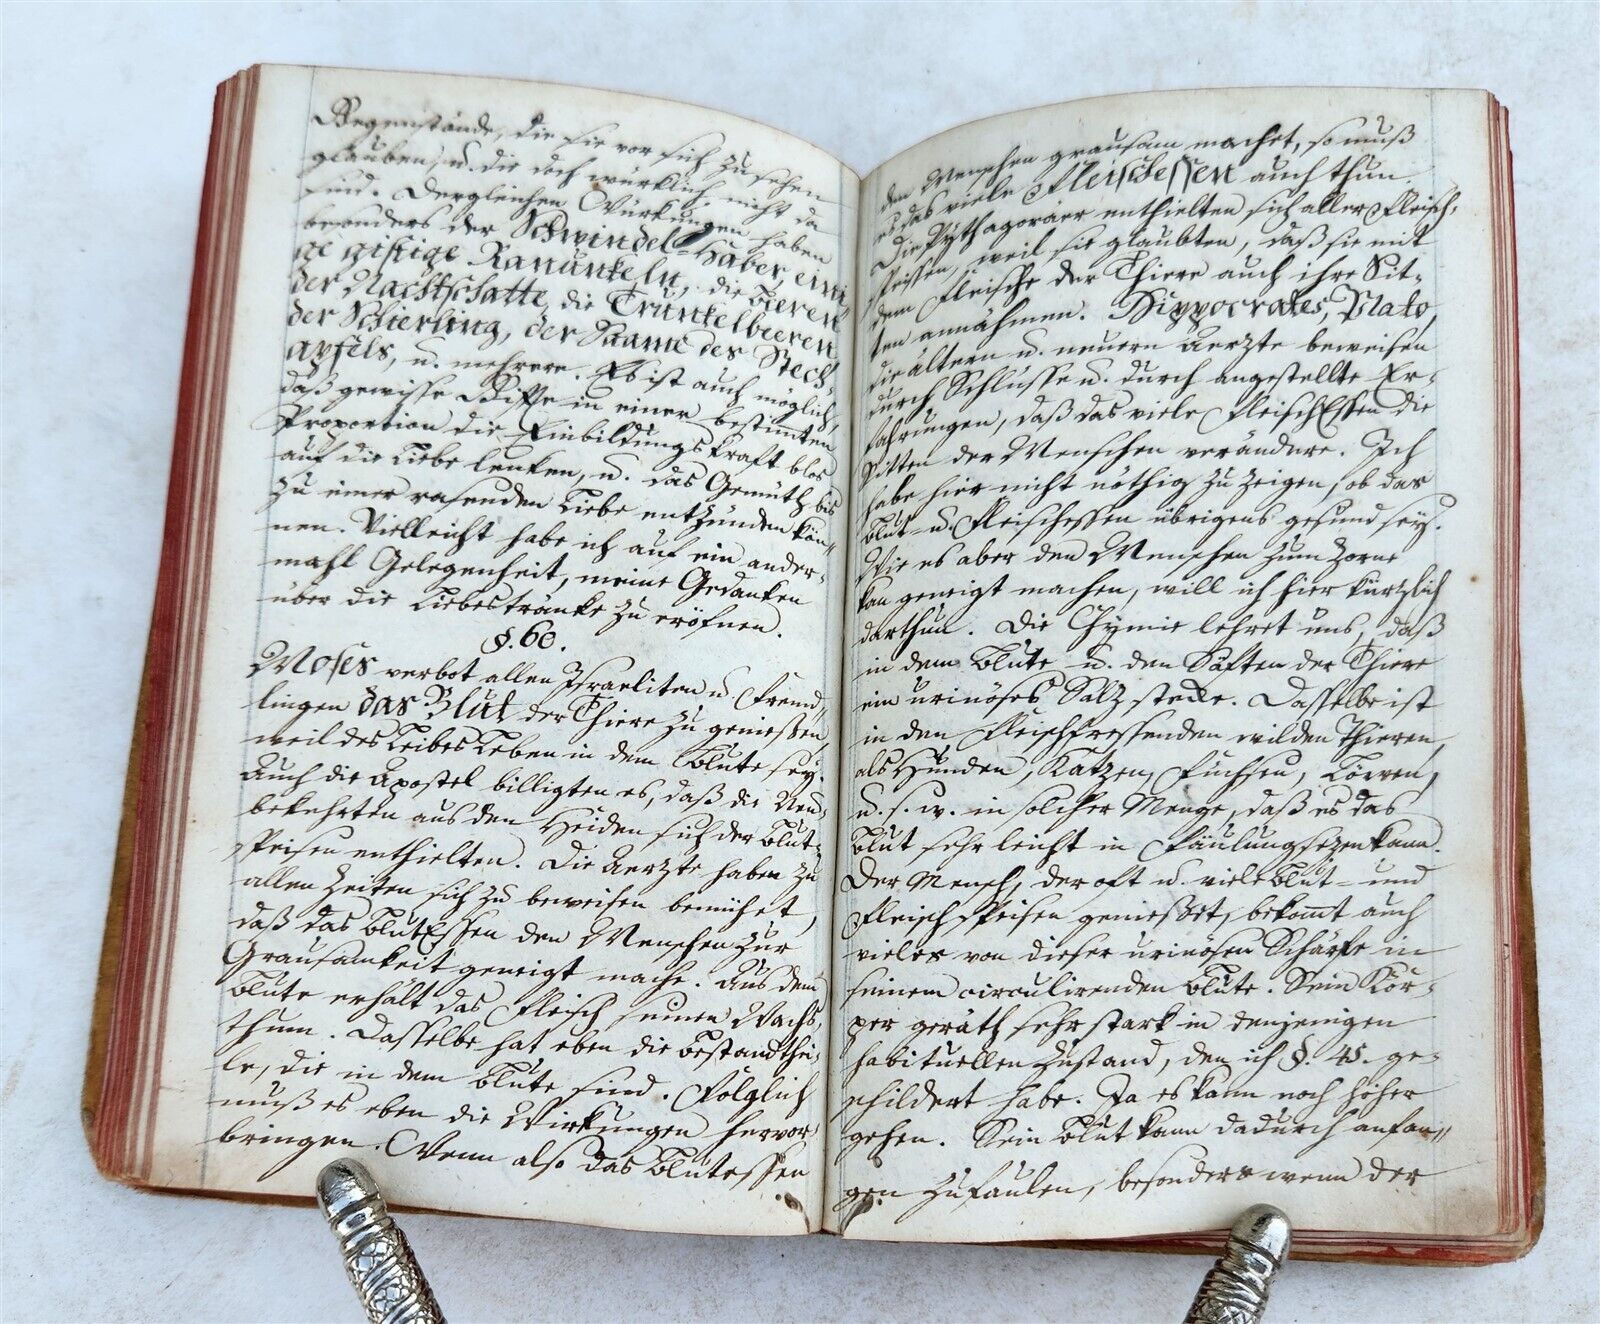 Gegenstände, die sie vor sich zu sehen
glauben, u. die doch würklich nicht da
sind. Dergleichen Würkungen haben
besonders der Schwindel-Haber, eini
ge giftige Ranunkeln, die Beeren
der Nachtschatte, die Trunkelbeeren
der Schierling, der Saame des Stech
apfels, u. mehrere. Es ist auch möglich,
daß gewisse Gifte in einer bestimten
Proportion die Einbildungskraft blos
auf die Liebe lenken, u. das Gemüth bis
zu einer rasenden Liebe entzünden kön=
nen. Vielleicht habe ich auf ein ander=
mahl Gelegenheit, meine Gedanken
über die Liebestränke zu eröfnen.
§. 60.
Moses verbot allen Israeliten u. Fremd=
lingen das Blut der Thiere zu genießen,
weil des Leibes Leben in dem Blute sey.
Auch die Apostel billigten es, daß die Neu=
bekehrten aus den Heiden sich der Blut=
speisen enthielten. Die Aerzte haben zu
allen Zeiten sich zu beweisen bemühet,
daß das BlutEssen den Menschen zur
Grausamkeit geneigt mache. Aus dem
Blute erhält das Fleisch seinen Wachs=
thum. Dasselbe hat eben die Bestandthei=
le, die in dem Blute sind. Folglich
muß es eben die Wirkungen hervor=
bringen. Wenn also das Blutessen
den Menschen grausam machet, so muß
es das viele Fleischessen auch thun.
Die Pythagoräer enthielten sich aller Fleisch=
speisen, weil sie glaubten, daß sie mit
dem Fleische der Thiere auch ihre Sit=
ten annähmen. Hippocrates, Plato,
die ältern u. neuern Aerzte beweisen
durch Schlüsse u. durch angestellte Er=
fahrungen, daß das viele FleischEssen die
Sitten der Menschen verändere. Ich
habe hier nicht nöthig zu zeigen, ob das
Blut- u. Fleischessen übrigens gesund sey.
Wie es aber den Menschen zum Zorne
kan geneigt machen, will ich hier kürzlich
darthun. Die Chymie lehret uns, daß
in dem Blute u. den Säften der Thiere
ein urinöses Salz stecke. Dasselbe ist
in den Fleischfressenden wilden Thieren,
als Hunden, Katzen, Füchsen, Löwen,
u. s. w. in solcher Menge, daß es das
Blut sehr leicht in Fäulung sezen kann.
Der Mensch, der oft u. viele Blut- und
Fleisch speisen genießet, bekomt auch
vieles von dieser urinösen Schärfe in
seinem circulirenden Blute. Sein Kör=
per geräth sehr stark in denjenigen
habituellen Zustand, den ich §. 45. ge=
schildert habe. Ja es kann noch höher
gehen. Sein Blut kann dadurch anfan=
gen zu faulen, besonders wenn der